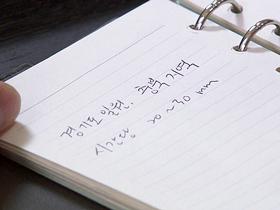 경기도 일원. 중부지역
시간당 20~30 mm